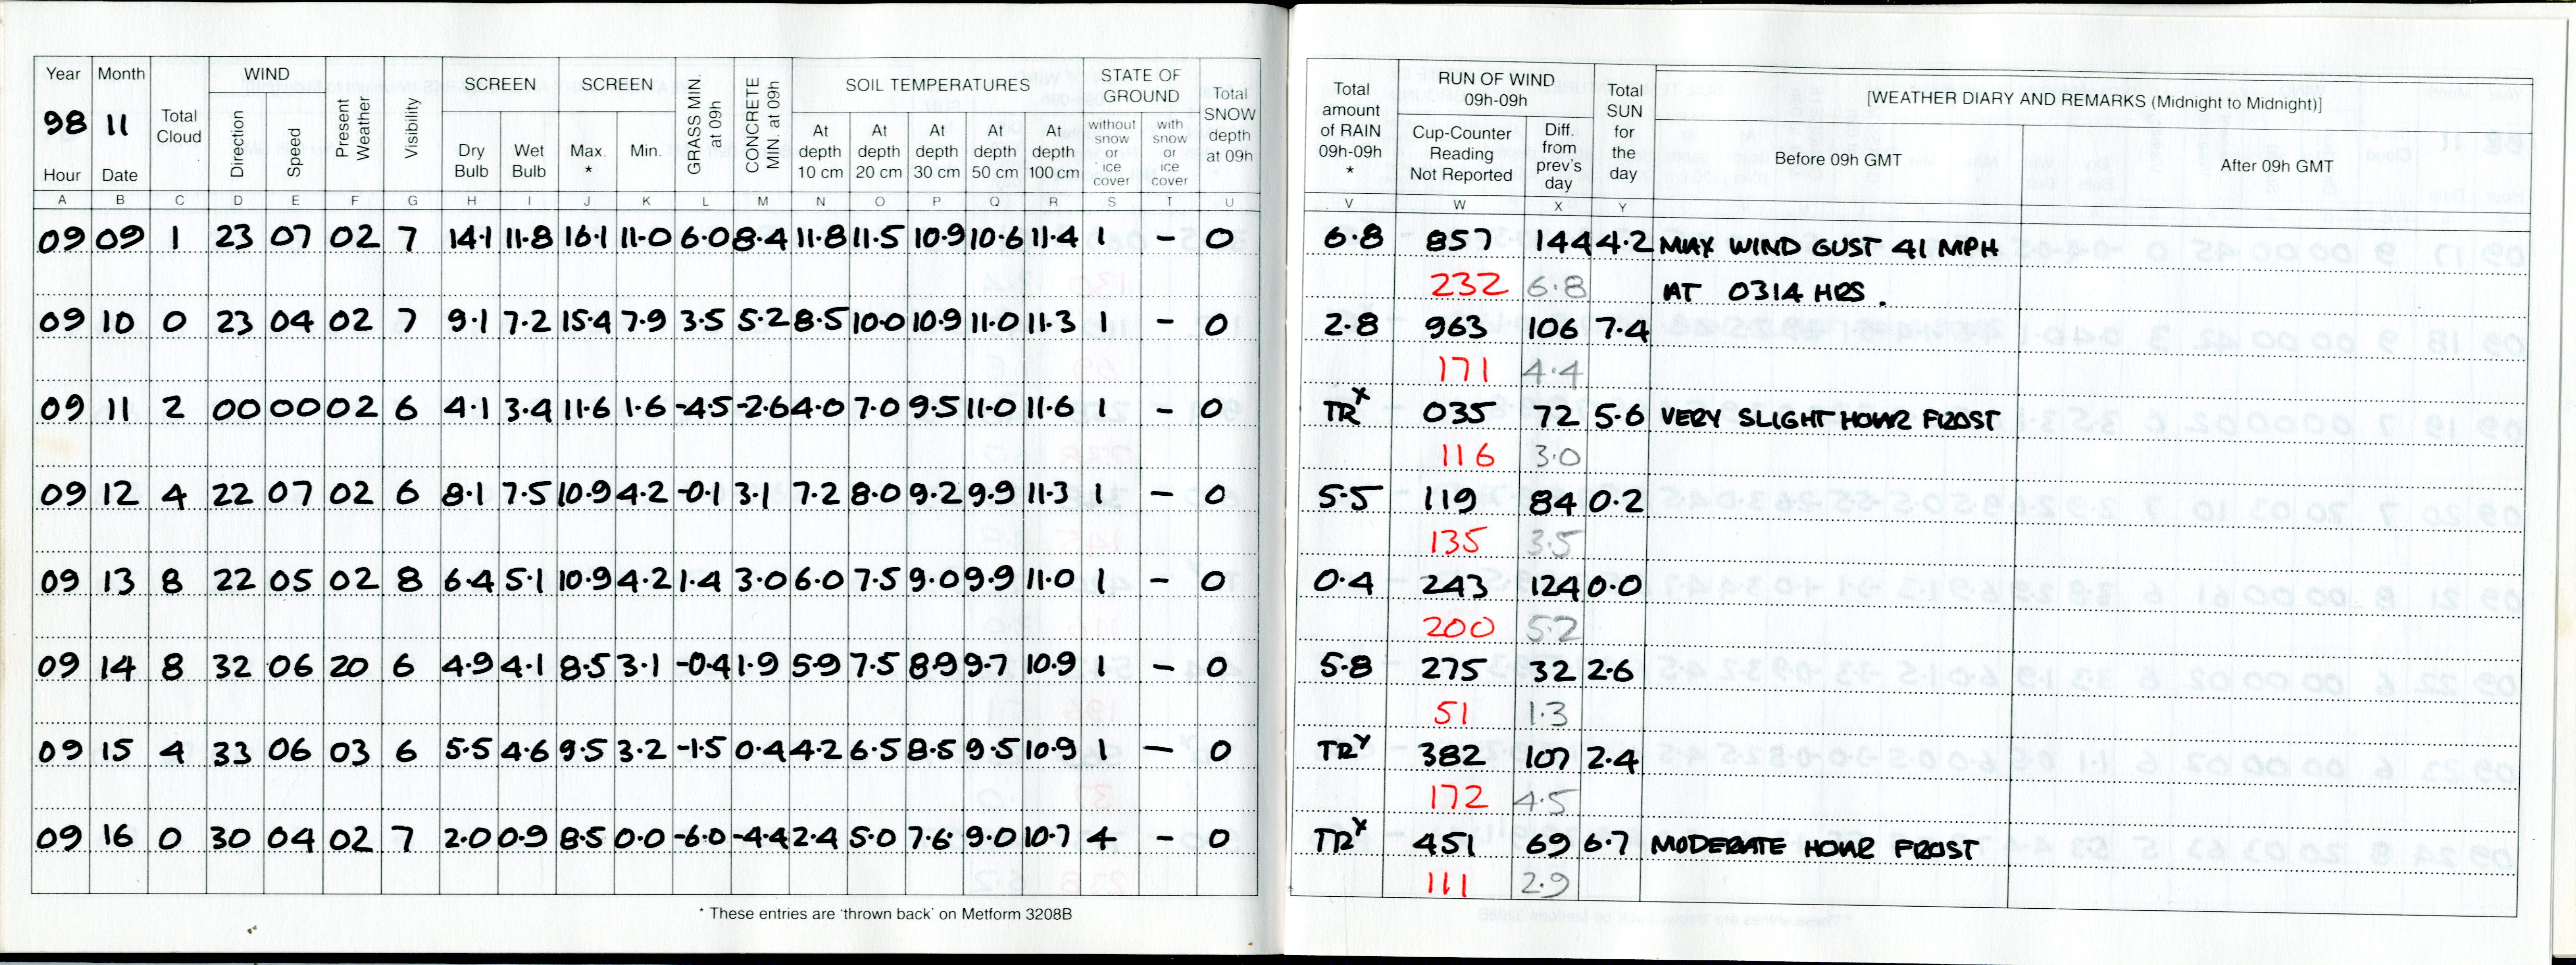 Year Month Total Cloud WIND Present Weather Visibility SCREEN SCREEN GRASS MIN. at 09h CONCRETE MIN. at 09h SOIL TEMPERATURES STATE OF GROUND Total SNOW depth at 09h
98 11 Direction Speed Dry Bulb Wet Bulb Max. * Min. At depth 10 cm At depth 20 cm At depth 30 cm At depth 50 cm At depth 100 cm without snow or ice cover with snow or ice cover
Hour Date
A B C D E F G H I J K L M N O P Q R S T U
09 09 1 23 07 02 7 14.1 11.8 16.1 11.0 6.0 8.4 11.8 11.5 10.9 10.6 11.4 1 – 0
09 10 0 23 04 02 7 9.1 7.2 15.4 7.9 3.5 5.2 8.5 10.0 10.9 11.0 11.3 1 – 0
09 11 2 00 00 02 6 4.1 3.4 11.6 1.6 -4.5 -2.6 4.0 7.0 9.5 11.0 11.6 1 – 0
09 12 4 22 07 02 6 8.1 7.5 10.9 4.2 -0.1 3.1 7.2 8.0 9.2 9.9 11.3 1 – 0
09 13 8 22 05 02 8 6.4 5.1 10.9 4.2 1.4 3.0 6.0 7.5 9.0 9.9 11.0 1 – 0
09 14 8 32 06 20 6 4.9 4.1 8.5 3.1 -0.4 1.9 5.9 7.5 8.9 9.7 10.9 1 – 0
09 15 4 33 06 03 6 5.5 4.6 9.5 3.2 -1.5 0.4 4.2 6.5 8.5 9.5 10.9 1 – 0
09 16 0 30 04 02 7 2.0 0.9 8.5 0.0 -6.0 -4.4 2.4 5.0 7.6 9.0 10.7 4 – 0
* These entries are 'thrown back' on Metform 3208B
Total amount of RAIN 09h-09h * RUN OF WIND 09h-09h Total SUN for the day [WEATHER DIARY AND REMARKS (Midnight to Midnight)]
Cup-Counter Reading Not Reported Diff. from prev's day Before 09h GMT After 09h GMT
V W X Y
6.8 857 144 4.2 MAX WIND GUST 41 MPH
232 6.8 AT 0314 HRS.
2.8 963 106 7.4
171 4.4
TR x 035 72 5.6 VERY SLIGHT HOAR FROST
116 3.0
5.5 119 84 0.2
135 3.5
0.4 243 124 0.0
200 5.2
5.8 275 32 2.6
51 1.3
TR x 382 107 2.4
172 4.5
TR x 451 69 6.7 MODERATE HOAR FROST
111 2.9